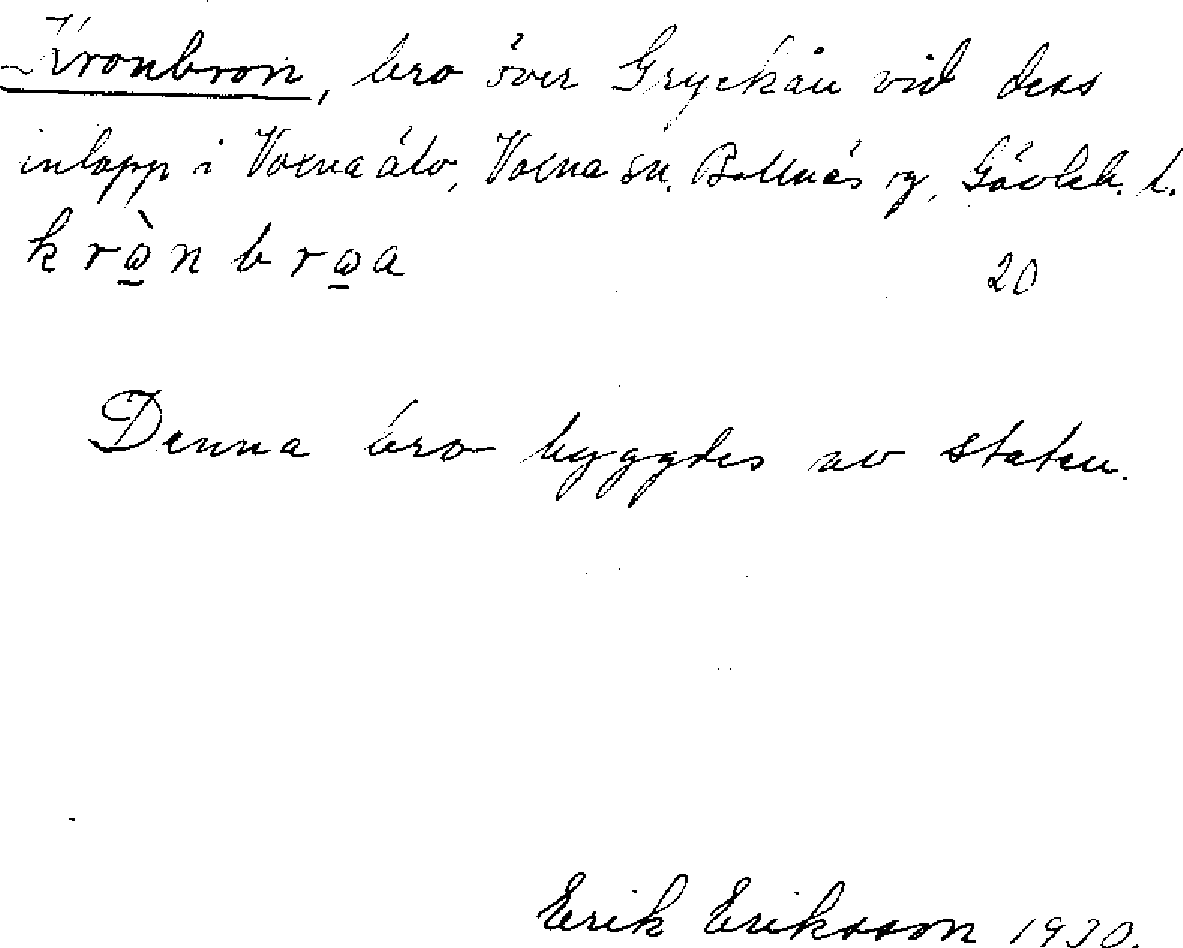 Kronbron, bro över Gryckån vid dess
inlopp i Voxna älv, Voxna sn. Bollnäs Gävleb. l.
k r ὼ̲ n b r ω̲ a 20
Denna bro byggdes av staten.
Erik Eriksson 1930.